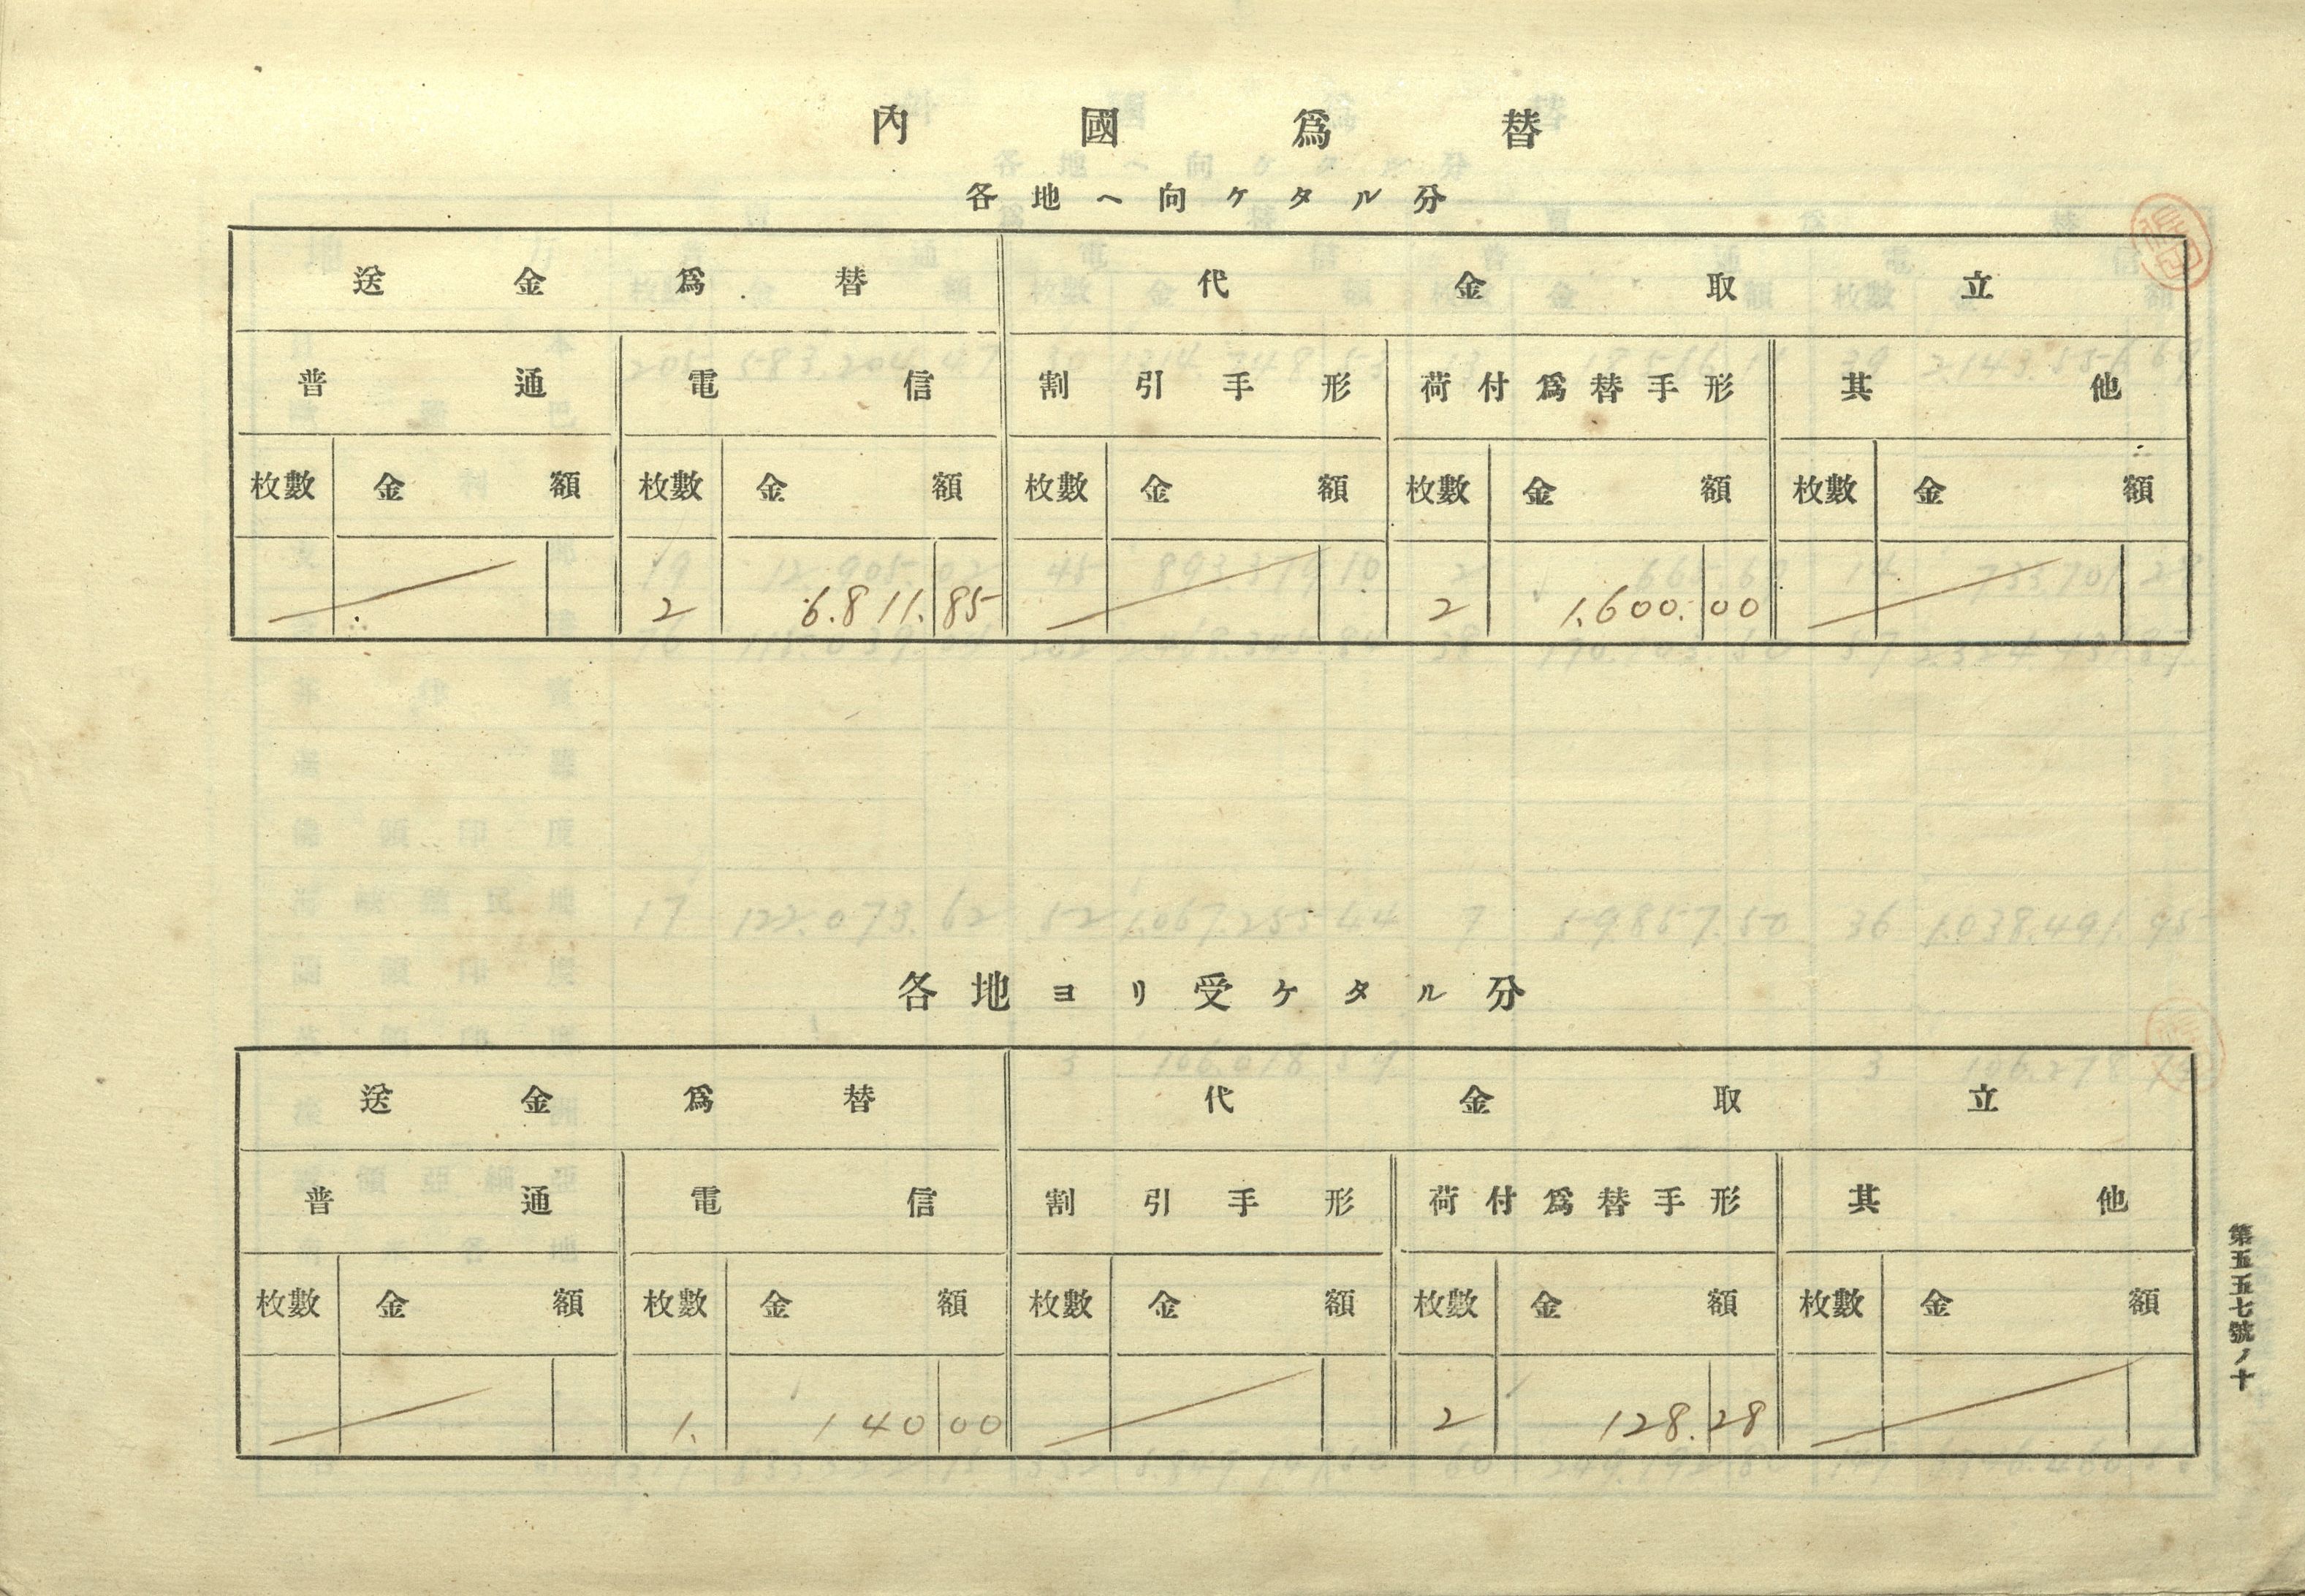 內國爲替
各地ヘ向ケタル分
送金爲替 代金取立
普通 電信 割引手形 荷付爲替手形 其他
枚數 金額 枚數 金額 枚數 金額 枚數 金額 枚數 金額
2 6.811.85 2 1.600.00
各地ヨリ受ケタル分
送金爲替 代金取立
普通 電信 割引手形 荷付爲替手形 其他
枚數 金額 枚數 金額 枚數 金額 枚數 金額 枚數 金額
1. 140 00 2 128.28
第五五七號ノ十